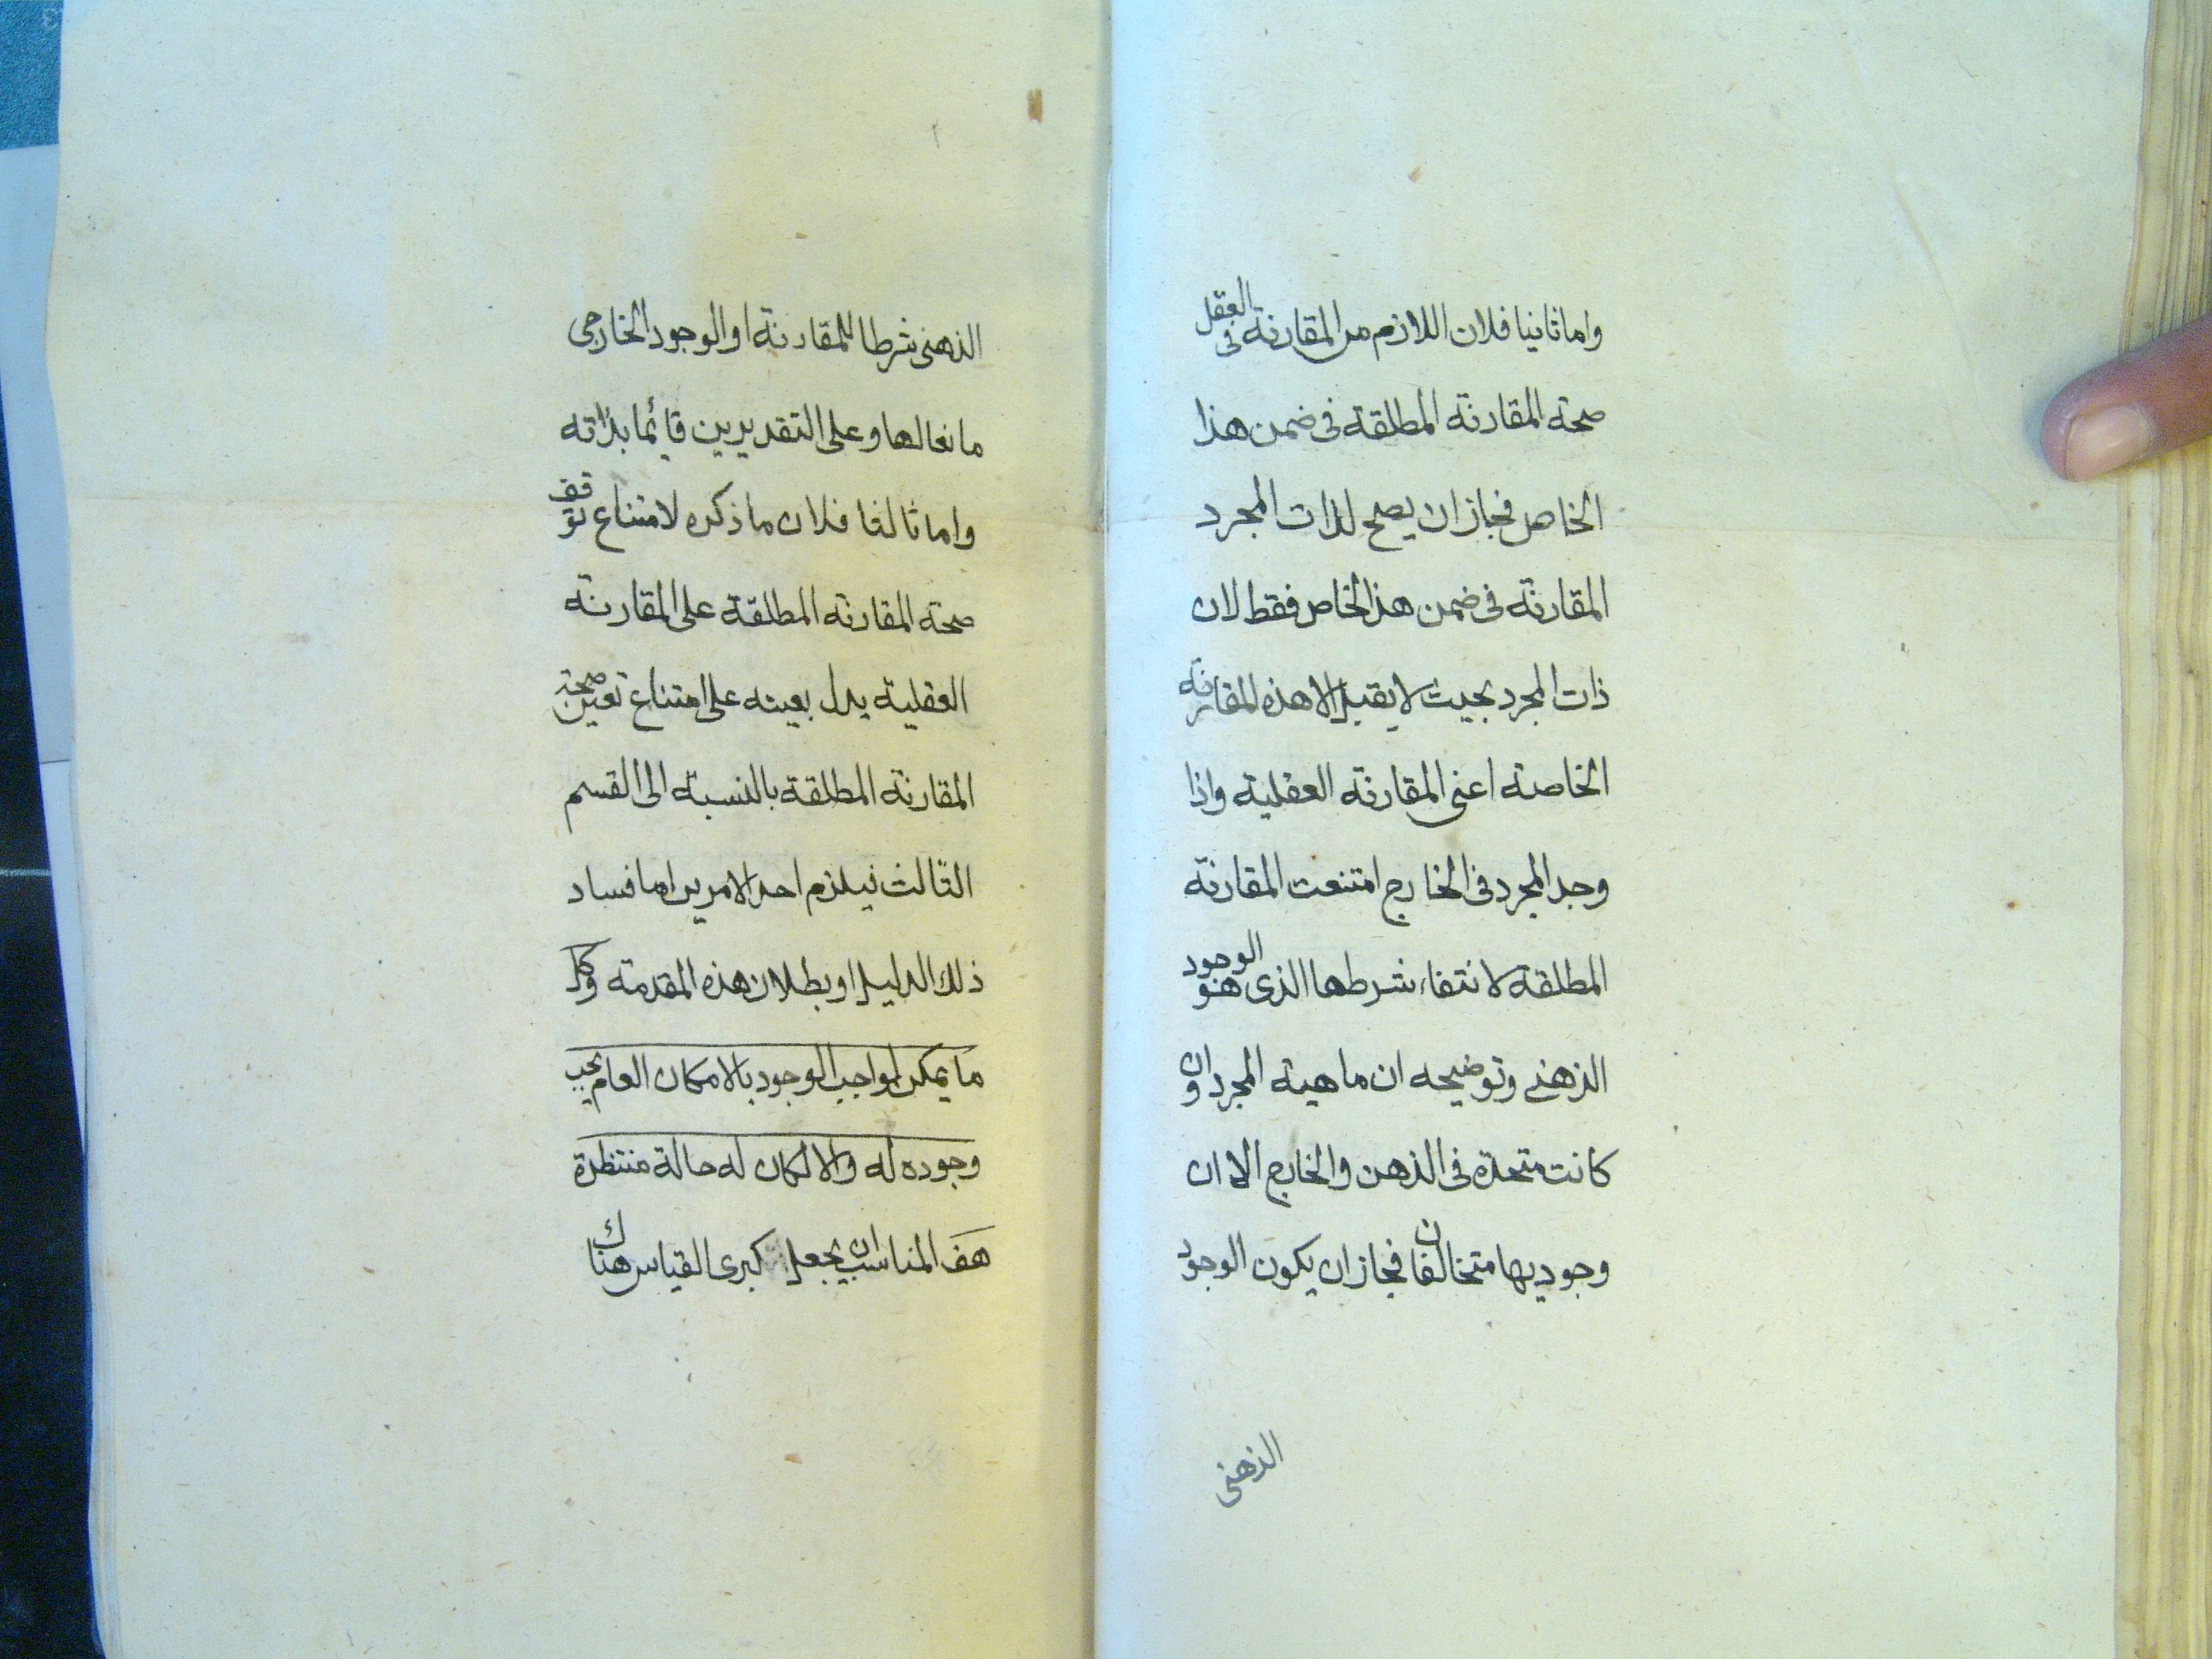 واما ثانيا فلان اللازم من المقارنة فى العقل
صحة المقارنة المطلقة فى ضمن هذا
الخاص فجاز ان يصح لذات المجرد
المقارنة فى ضمن هذا الخاص فقط لان
ذات المجرد بحيث لا يقبل الا هذه المقارنة
الخاصة اعنى المقارنة العقلية واذا
وجد المجرد فى الخارج امتنعت المقارنة
المطلقة لانتفاء شرطها الذى هو الوجود
الذهنى وتوضيحه ان ماهية المجرد وان
كانت متحدة فى الذهن والخارج الا ان
وجوديها متخالفان فجاز ان يكون الوجود
الذهنى
الذهنى شرطا للمقارنة او الوجود الخارجى
مانعا لها وعلى التقديرين قائما بذاته
واما ثالثا فلان ما ذكره لامتناع توقف
صحة المقارنة المطلقة على المقارنة
العقلية يدل بعينه على امتناع تعين صحة
المقارنة المطلقة بالنسبة الى القسم
الثالث فيلزم احد الامرين اما فساد
ذلك الدليل او بطلان هذه المقدمة وكل
ما يمكن لواجب الوجود بالامكان العام يجب
وجوده له والا لكان له حالة منتظرة
هف المناسب ان يجعل كبرى القياس هناك